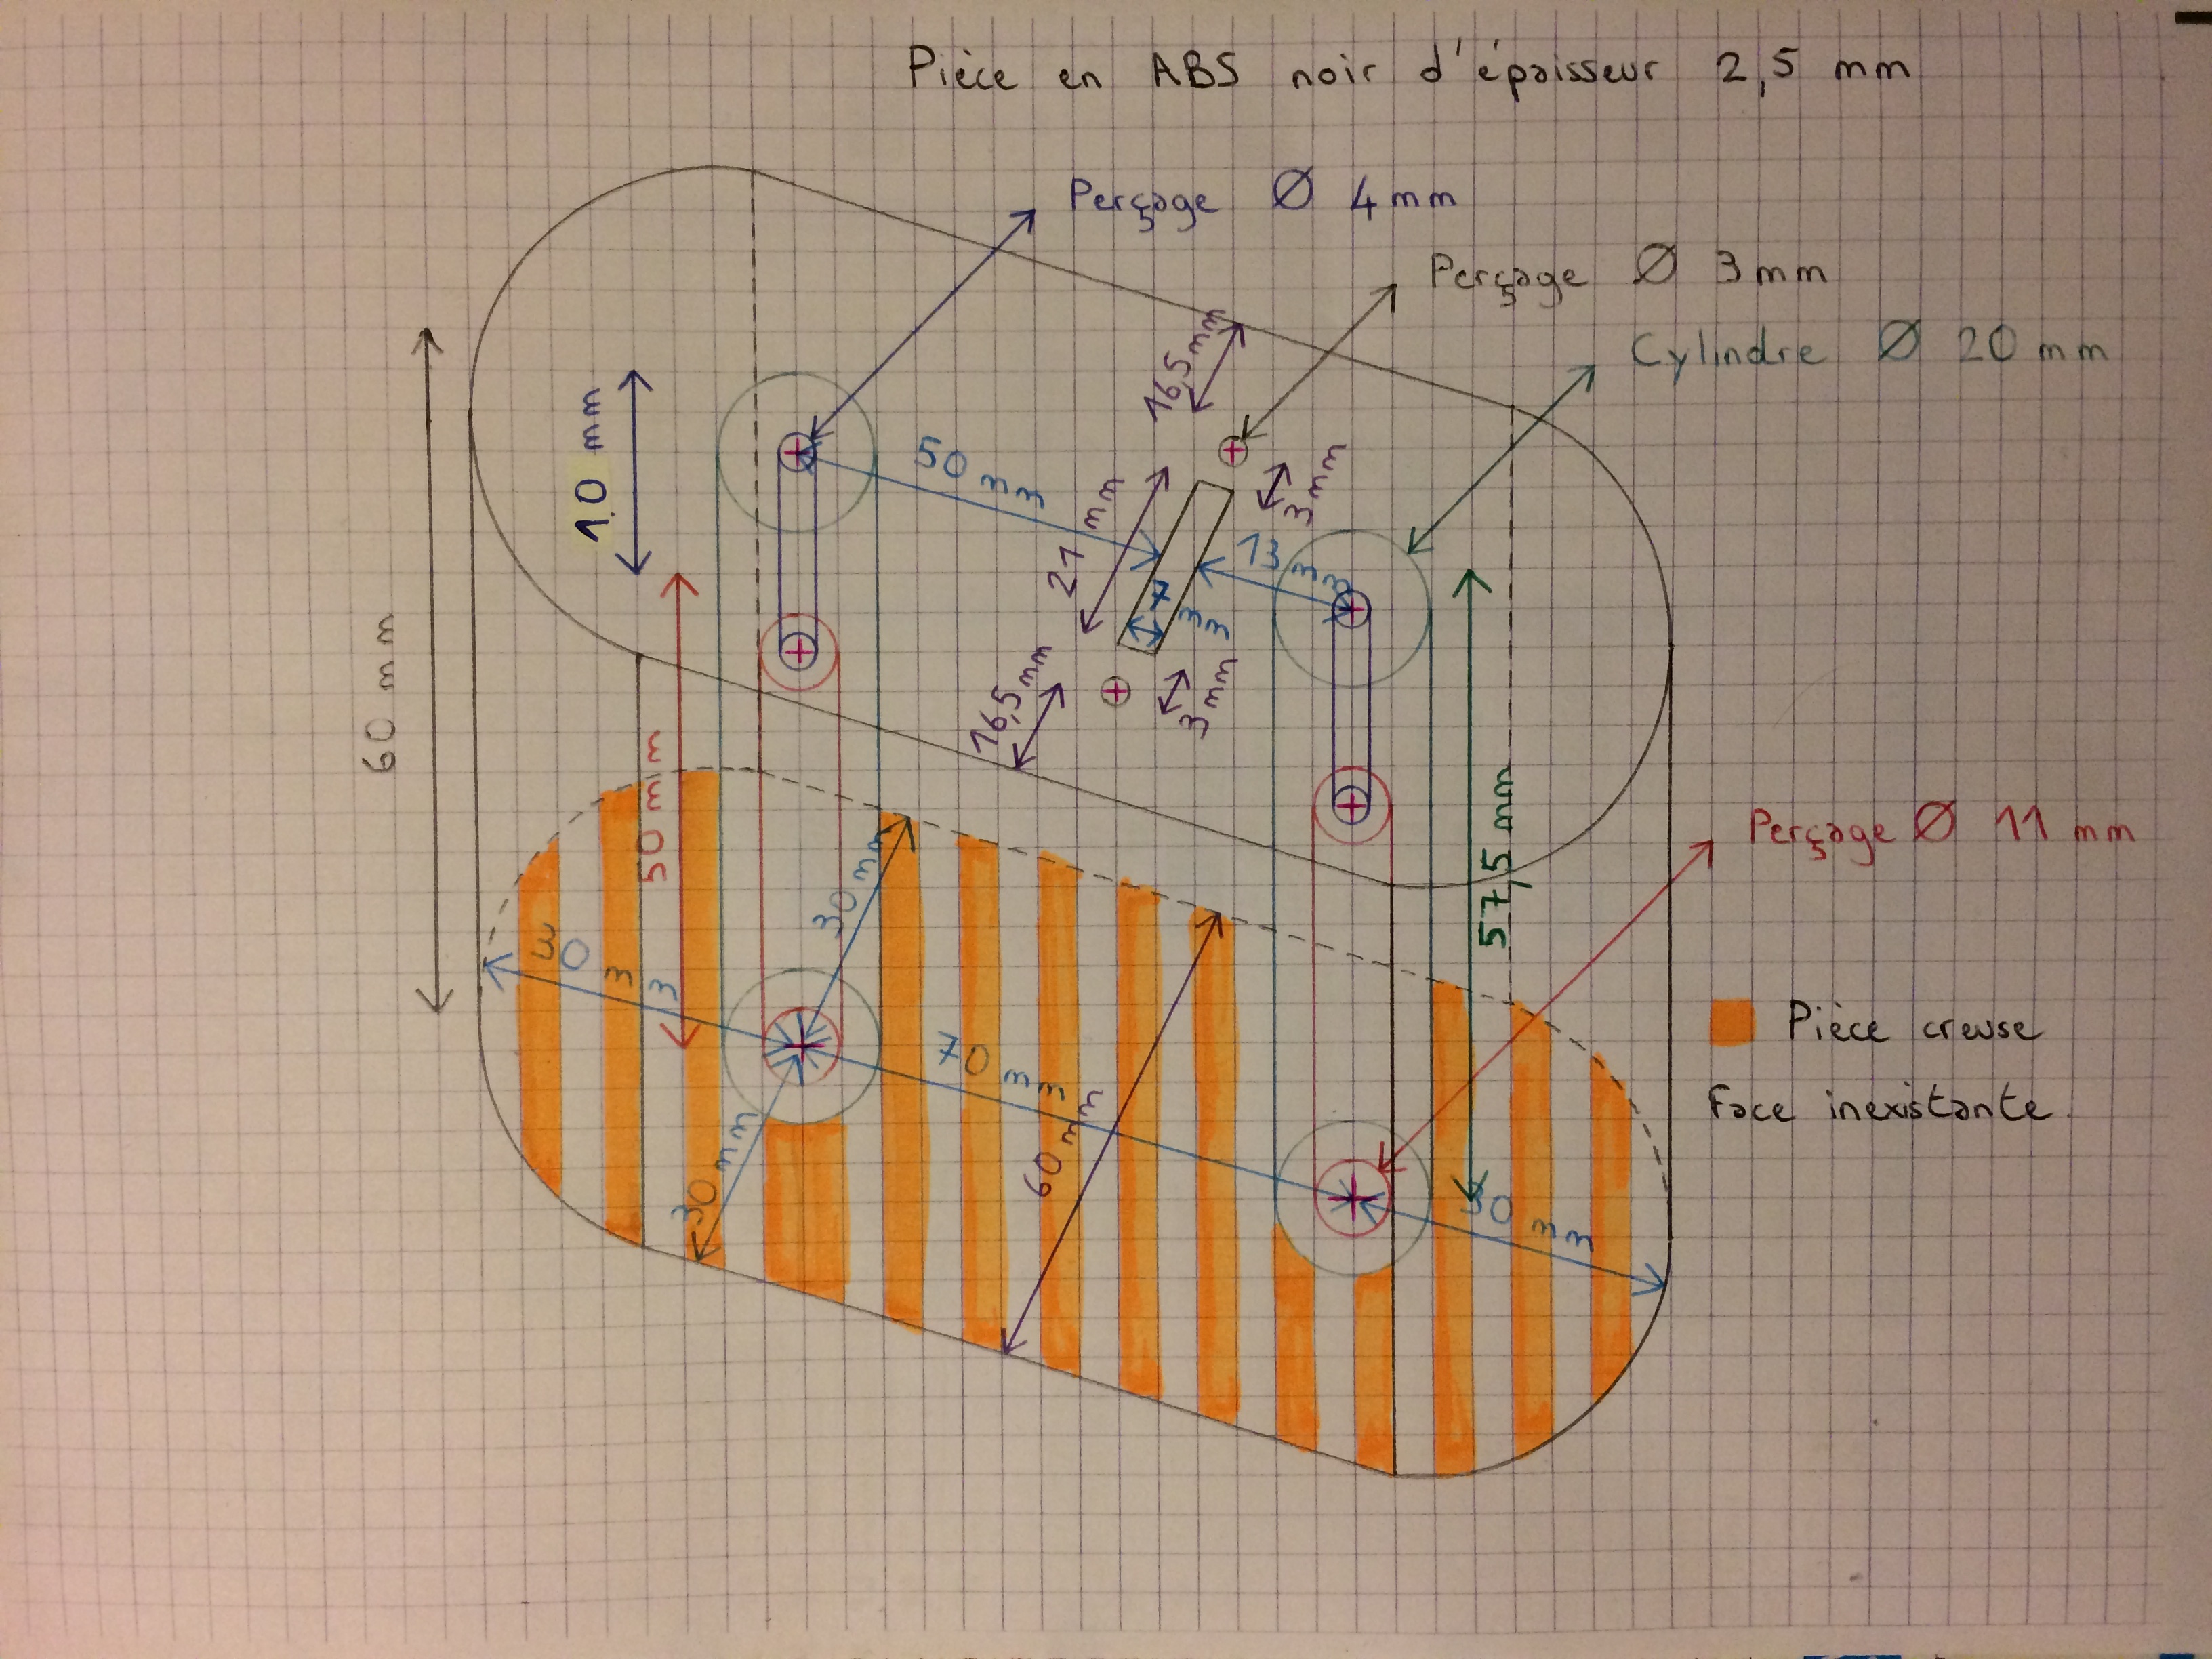 Pièce en ABS noir d'épaisseur 2,5 mm
Perçage Ø 4 mm
Perçage Ø 3 mm
Cylindre Ø 20 mm
16,5 mm
10 mm
50 mm
3 mm
21 mm
13 mm
7 mm
60 mm
16,5 mm
3 mm
50 mm
57,5 mm
Perçage Ø 11 mm
30 mm
30 mm
70 mm
Pièce creuse
Face inexistante
60 mm
30 mm
30 mm